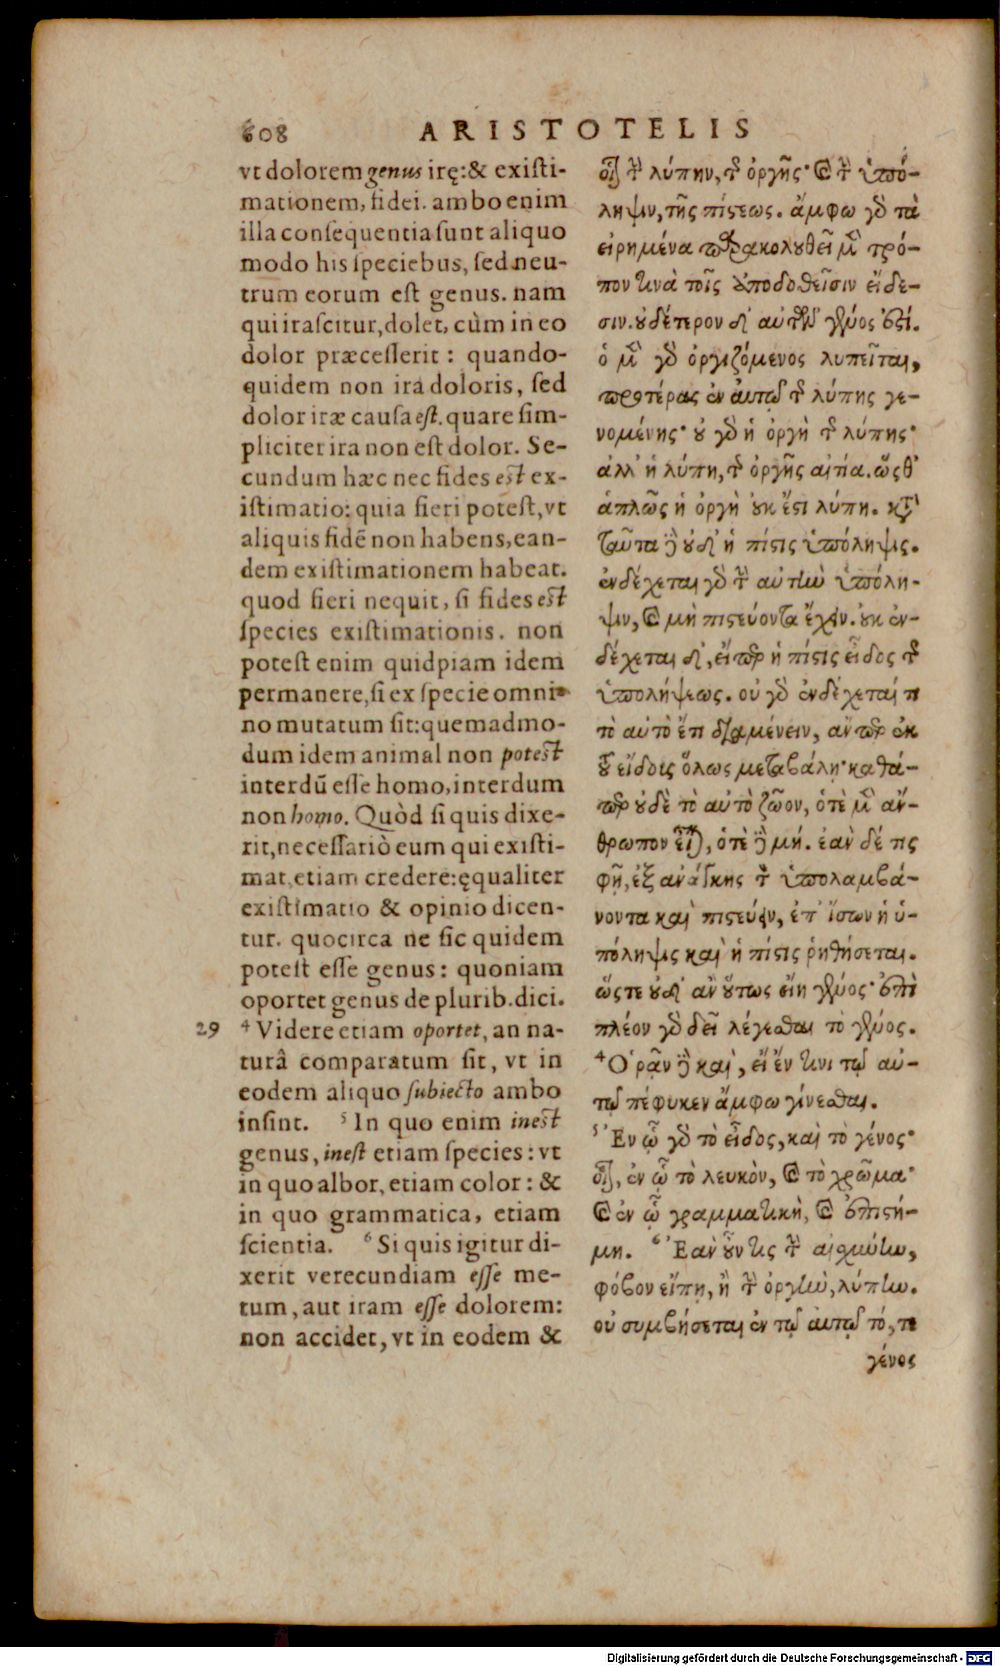 608 ARISTOTELIS
vt dolorem genus irę: & existi-
mationem, fidei. ambo enim
illa consequentia sunt aliquo
modo his speciebus, sed neu-
trum eorum est genus. nam
qui irascitur, dolet, cùm in eo
dolor præcesserit: quando-
quidem non ira doloris, sed
dolor iræ causa est. quare sim-
pliciter ira non est dolor. Se-
cundum hæc nec fides est ex-
istimatio: quia fieri potest, vt
aliquis fidē non habens, ean-
dem existimationem habeat.
quod fieri nequit, si fides est
species existimationis. non
potest enim quidpiam idem
permanere, si ex specie omni-
no mutatum sit: quemadmo-
dum idem animal non potest
interdū esse homo, interdum
non homo. Quòd si quis dixe-
rit, necessariò eum qui existi-
mat, etiam credere: ęqualiter
existimatio & opinio dicen-
tur. quocirca ne sic quidem
potest esse genus: quoniam
oportet genus de plurib. dici.
29 ⁴ Videre etiam oportet, an na-
turâ comparatum sit, vt in
eodem aliquo subiecto ambo
insint. ⁵ In quo enim inest
genus, inest etiam species: vt
in quo albor, etiam color: &
in quo grammatica, etiam
scientia. ⁶ Si quis igitur di-
xerit verecundiam esse me-
tum, aut iram esse dolorem:
non accidet, vt in eodem &
οἷον τὴν λύπην, τῆς ὀργῆς· καὶ τὴν ὑπό-
ληψιν, τῆς πίστεως. ἄμφω γὰρ τὰ
εἰρημένα παρακολουθεῖ μὲν τρό-
πον τινὰ τοῖς ἀποδοθεῖσιν εἴδε-
σιν. οὐδέτερον δ' αὐτῶν γένος ἐστί.
ὁ μὲν γὰρ ὀργιζόμενος λυπεῖται,
προτέρας ἐν αὐτῷ τῆς λύπης γε-
νομένης· οὐ γὰρ ἡ ὀργὴ τῆς λύπης·
ἀλλ' ἡ λύπη, τῆς ὀργῆς αἰτία. ὥσθ'
ἁπλῶς ἡ ὀργὴ οὐκ ἔστι λύπη. κατὰ
ταῦτα δὲ οὐδ' ἡ πίστις ὑπόληψις.
ἐνδέχεται γὰρ τὴν αὐτὴν ὑπόλη-
ψιν, καὶ μὴ πιστεύοντα ἔχειν. οὐκ ἐν-
δέχεται δ', εἴπερ ἡ πίστις εἶδος τῆς
ὑπολήψεως. οὐ γὰρ ἐνδέχεταί τι
τὸ αὐτὸ ἔτι διαμένειν, ἄν περ ἐκ
τοῦ εἴδους ὅλως μεταβάλῃ· καθά-
περ οὐδὲ τὸ αὐτὸ ζῷον, ὁτὲ μὲν ἄν-
θρωπον εἶναι, ὁτὲ δὲ μή. ἐὰν δέ τις
φῇ, ἐξ ἀνάγκης τὸν ὑπολαμβά-
νοντα καὶ πιστεύειν, ἐπ' ἴσων ἡ ὑ-
πόληψις καὶ ἡ πίστις ῥηθήσεται.
ὥστε οὐδ' ἂν οὕτως εἴη γένος· ἐπὶ
πλέον γὰρ δεῖ λέγεσθαι τὸ γένος.
⁴ Ὁρᾷν δὲ καὶ, εἰ ἔν τινι τῷ αὐ-
τῷ πέφυκεν ἄμφω γίνεσθαι.
⁵ Ἐν ᾧ γὰρ τὸ εἶδος, καὶ τὸ γένος·
οἷον, ἐν ᾧ τὸ λευκὸν, καὶ τὸ χρῶμα·
καὶ ἐν ᾧ γραμματικὴ, καὶ ἐπιστή-
μη. ⁶ Ἐὰν οὖν τις τὴν αἰσχύνην,
φόβον εἴπῃ, ἢ τὴν ὀργὴν, λύπην.
οὐ συμβήσεται ἐν τῷ αὐτῷ τό, τε
γένος
Digitalisierung gefördert durch die Deutsche Forschungsgemeinschaft - DFG